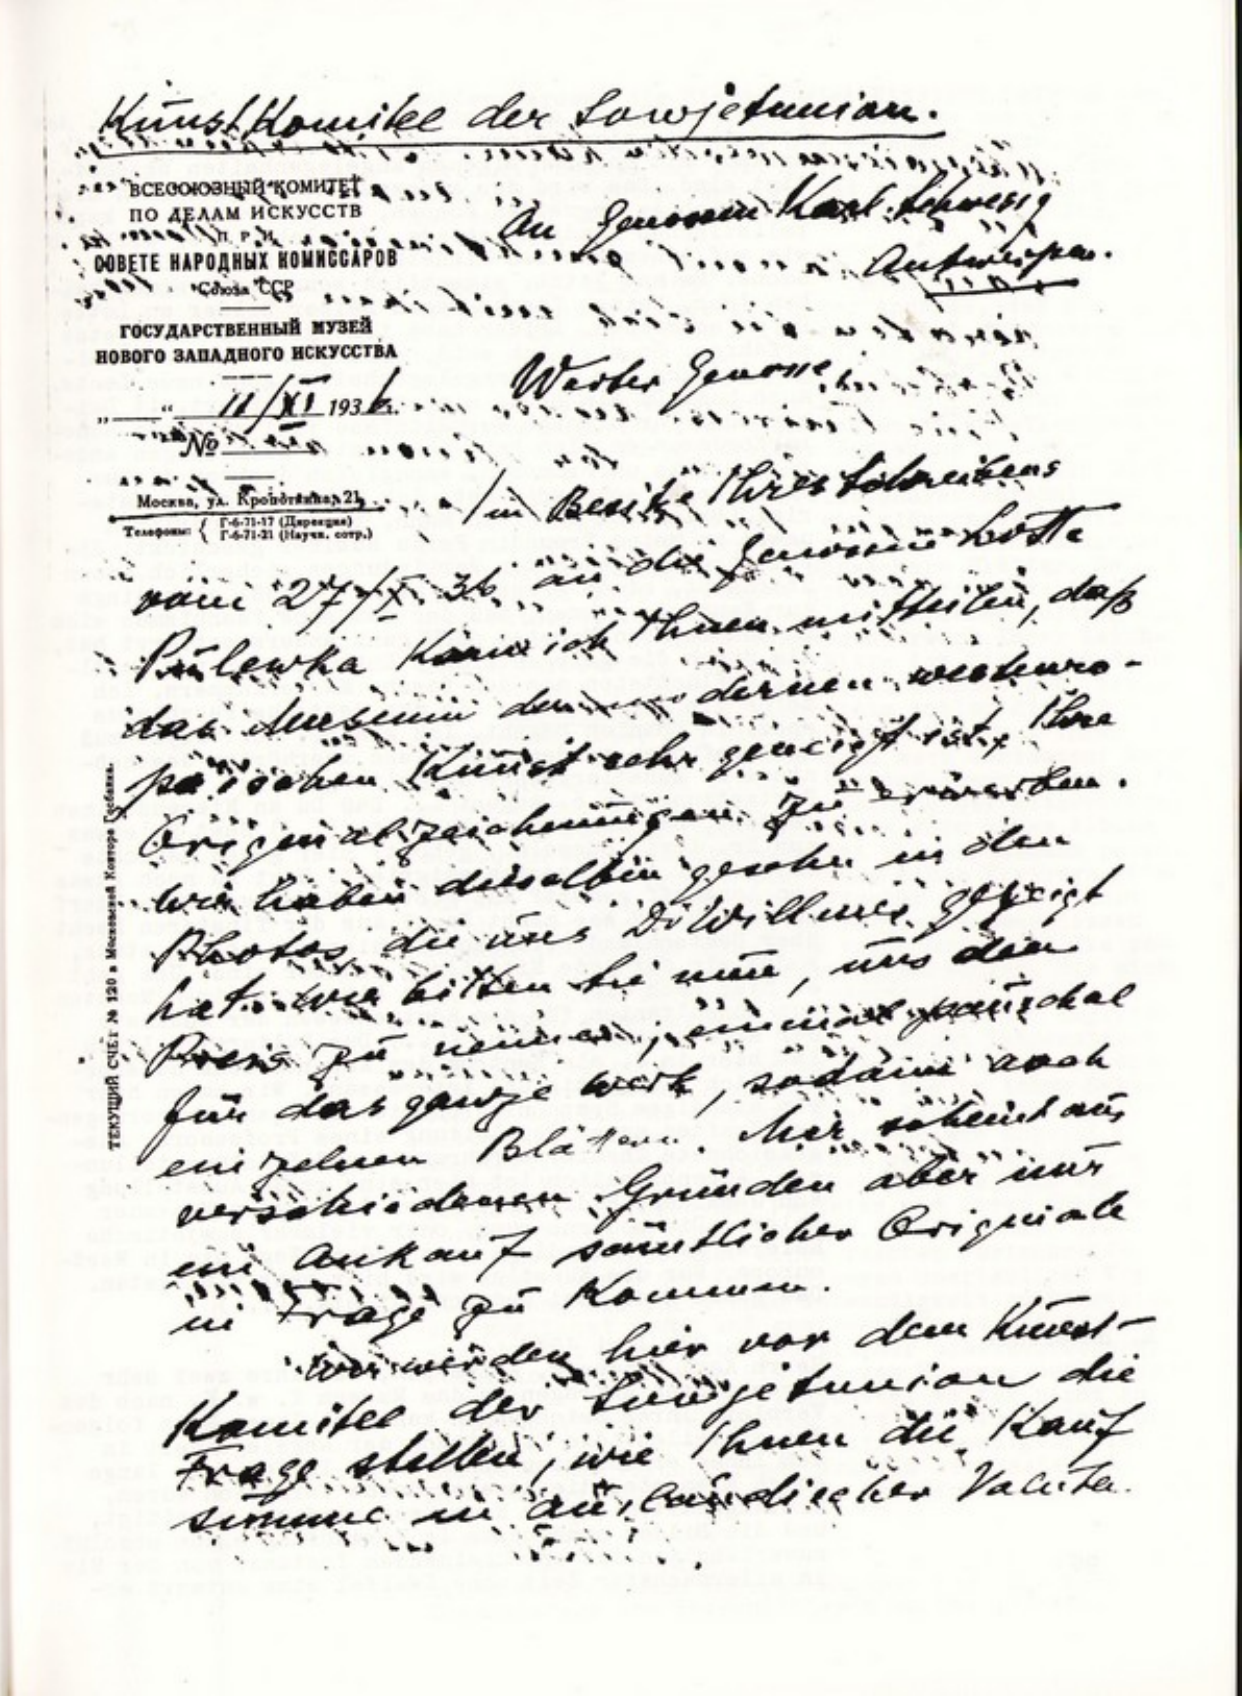 Kunstkomitee der Sowjetunion.
ВСЕСОЮЗНЫЙ КОМИТЕТ
ПО ДЕЛАМ ИСКУССТВ
ПРИ
СОВЕТЕ НАРОДНЫХ КОМИССАРОВ
Союза ССР
ГОСУДАРСТВЕННЫЙ МУЗЕЙ
НОВОГО ЗАПАДНОГО ИСКУССТВА
„ “ 11/XI 1936.
№
Москва, ул. Кропоткина, 21
Телефоны: { Г-6-71-17 (Дирекция)
Г-6-71-21 (Научн. сотр.)
ТЕКУЩИЙ СЧЕТ № 120 в Московской Конторе Госбанка.
An Genossen Karl Schwesig
Antwerpen.
Werter Genosse,
Im Besitze Ihres Schreibens
vom 27/X 36 an die Genossin Lotte
Pulewka kann ich Ihnen mitteilen, daß
das Museum der modernen westeuro-
päischen Kunst sehr geneigt ist, Ihre
Originalzeichnungen zu erwerben.
Wir haben dieselben gesehn in den
Photos, die uns Dr Willmes gezeigt
hat. Wir bitten Sie nun, uns den
Preis zu nennen, einmal pauschal
für das ganze Werk, sodann auch
einzelnen Blättern. Mir scheint aus
verschiedenen Gründen aber nur
ein Ankauf sämtlicher Originale
in Frage zu kommen.
Wir werden hier vor dem Kunst-
Komitee der Sowjetunion die
Frage stellen, wie Ihnen die Kauf
summe in ausländischer Valuta.